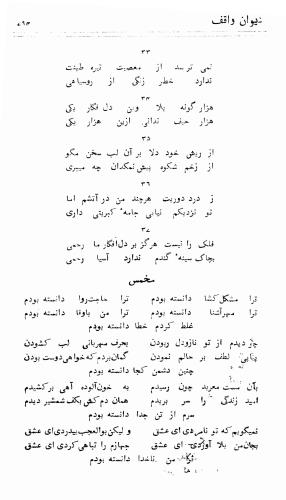 دیوان واقف
۴۹۳
۳۳
نمی ترسد از معصیت تیره طینت
ندارد خطر زنگی از روسیاهی
۳۴
هزار گونه بلا وین دل فگار یکی
هزار حیف ندانی ازین هزار یکی
۳۵
از ریش خود دلا بر آن لب سخن مگو
از زخم شکوه پیش نمکدان چه میبری
۳۶
ز درد دوریت هرچند من در آتشم اما
تو نزدیکم نیایی جامهٔ کبریتی داری
۳۷
فلک را نیست هرگز بر دل افگار ما رحمی
بچاک سینهٔ گندم ندارد آسیا رحمی
مخمس
ترا مشکل کشا دانسته بودم ترا حاجت روا دانسته بودم
ترا مهر آشنا دانسته بودم ترا من باوفا دانسته بودم
غلط کردم خطا دانسته بودم
چو دیدم از تو نازو دل ربودن بحرف مهربانی لب کشودن
پیاپی لطف بر حالم نمودن گمان بردم که خواهی دوست بودن
چنین دشمن کجا دانسته بودم
بآن مست معربد چون رسیدم به خون آلوده آهی برکشیدم
امید زندگی را سر بریدم همان دم کش بکف شمشیر دیدم
سرم از تن جدا دانسته بودم
نمیگویم که تو نامردی ای عشق ولیکن بوالعجب بیدردی ای عشق
بجان من بلا آوردی ای عشق جهازم را تباهی کردی ای عشق
ترا من ناخدا دانسته بودم